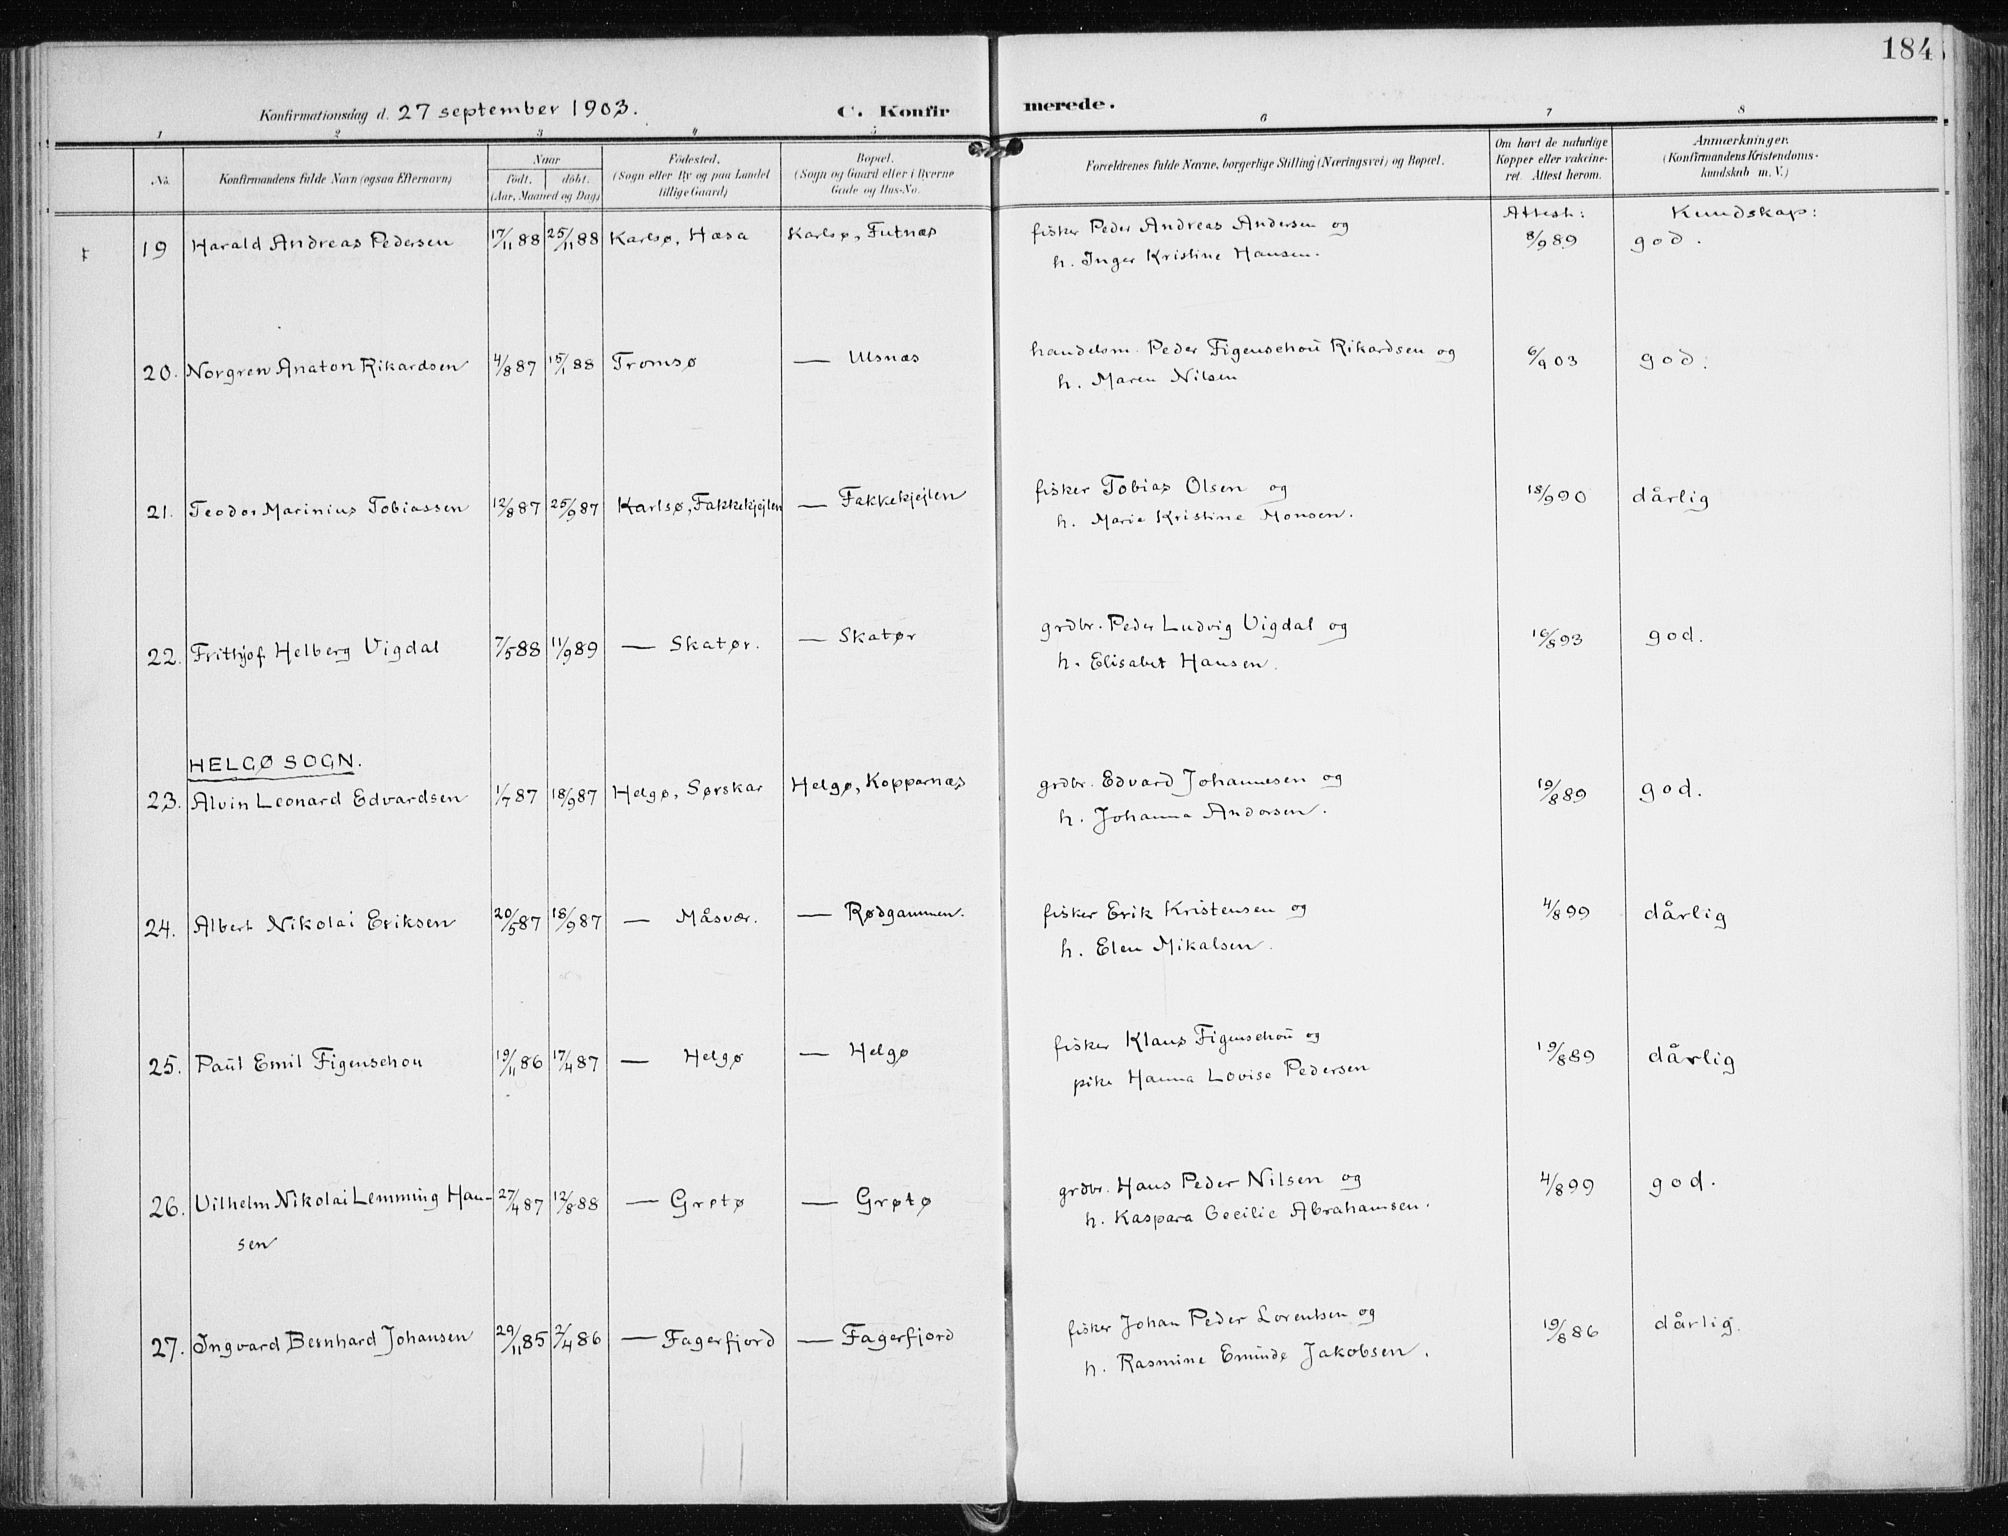 184
Konfirmationsdag d. 27 september 1903. C. Konfirmerede.
1 2 3 4 5 6 7 8
No. Konfirmandens fulde Navn (ogsaa Efternavn) Naar født. døbt. (Aar, Maaned og Dag) Fødested. (Sogn eller By og paa Landet tillige Gaard) Bopæl. (Sogn og Gaard eller i Byerne Gade og Hus-No. Forældrenes fulde Navne, borgerlige Stilling (Næringsvei) og Bopæl. Om havt de naturlige Kopper eller vakcineret. Attest herom. Anmærkninger. (Konfirmandens Kristendomskundskab m. V.)
Attest: Kundskap:
19 Harald Andreas Pedersen 17/11 88 25/11 88 Karlsø, Hæsa Karlsø, Futnæs fisker Peder Andreas Andersen og 8/9 89 god.
h. Inger Kristine Hansen.
20. Norgren Anaton Rikardsen 4/8 87 15/1 88 Tromsø — Ulsnæs handelsm. Peder Figenschou Rikardsen og 6/9 03 god.
h. Maren Nilsen
21. Teodor Marinius Tobiassen 12/8 87 25/9 87 Karlsø, Fakkekjejlen — Fakkekjejlen fisker Tobias Olsen og 18/9 90 dårlig
h. Marie Kristine Monsen.
22. Frithjof Helberg Vigdal 7/5 88 11/9 89 — Skatør. — Skatør grdbr. Peder Ludvig Vigdal og 16/8 93 god.
h. Elisabet Hansen.
HELGØ SOGN.
23. Alvin Leonard Edvardsen 1/7 87 18/9 87 Helgø, Sørskar Helgø, Kopparnæs grdbr. Edvard Johannesen og 19/8 89 god.
h. Johanna Andersen.
24. Albert Nikolai Eriksen 20/5 87 18/9 87 — Måsvær. — Rødgammen. fisker Erik Kristensen og 4/8 99 dårlig
h. Elen Mikalsen.
25. Paul Emil Figenschou 19/11 86 17/4 87 — Helgø — Helgø fisker Klaus Figenschou og 19/8 89 dårlig
pike Hanna Lovise Pedersen
26. Vilhelm Nikolai Lemming Han- 27/4 87 12/8 88 — Grøtø — Grøtø grdbr. Hans Peder Nilsen og 4/8 99 god.
sen h. Kaspara Cecilie Abrahamsen.
27. Ingvard Bernhard Johansen 29/11 85 2/4 86 — Fagerfjord — Fagerfjord fisker Johan Peder Lorentsen og 19/8 86 dårlig.
h. Rasmine Eminde Jakobsen.